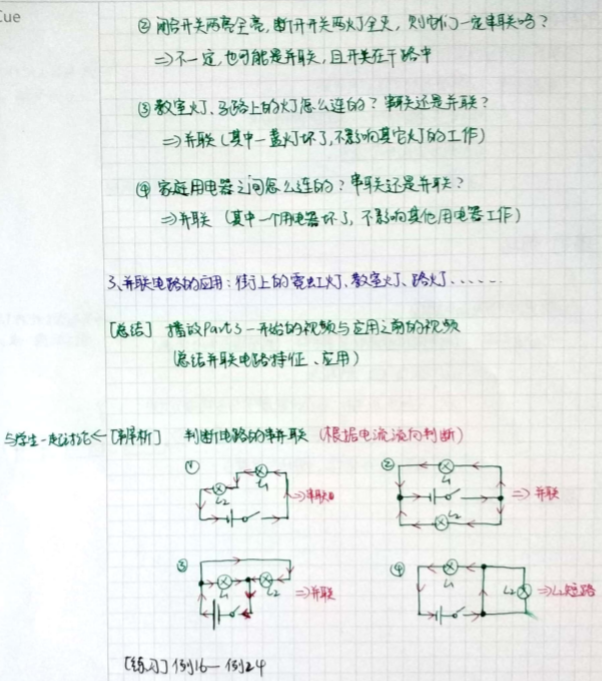 Cue
② 闭合开关两亮全亮,断开开关两灯全灭,则它们一定串联吗?
⇒不一定,也可能是并联,且开关在干路中
③ 教室灯、马路上的灯怎么连的?串联还是并联?
⇒并联(其中一盏灯坏了,不影响其它灯的工作)
④ 家庭用电器之间怎么连的?串联还是并联?
⇒并联 (其中一个用电器坏了,不影响其他用电器工作)
3、并联电路的应用:街上的霓虹灯、教室灯、路灯......
[总结] 播放Part3一开始的视频与应用之前的视频
(总结并联电路特征、应用)
与学生一起讨论←[辨析] 判断电路的串并联 (根据电流流向判断)
① L₁ L₂ ⇒串联
② L₁ L₂ ⇒并联
③ L₁ L₂ ⇒并联
④ L₁ L₂ ⇒L₂短路
[练习] 例16—例24